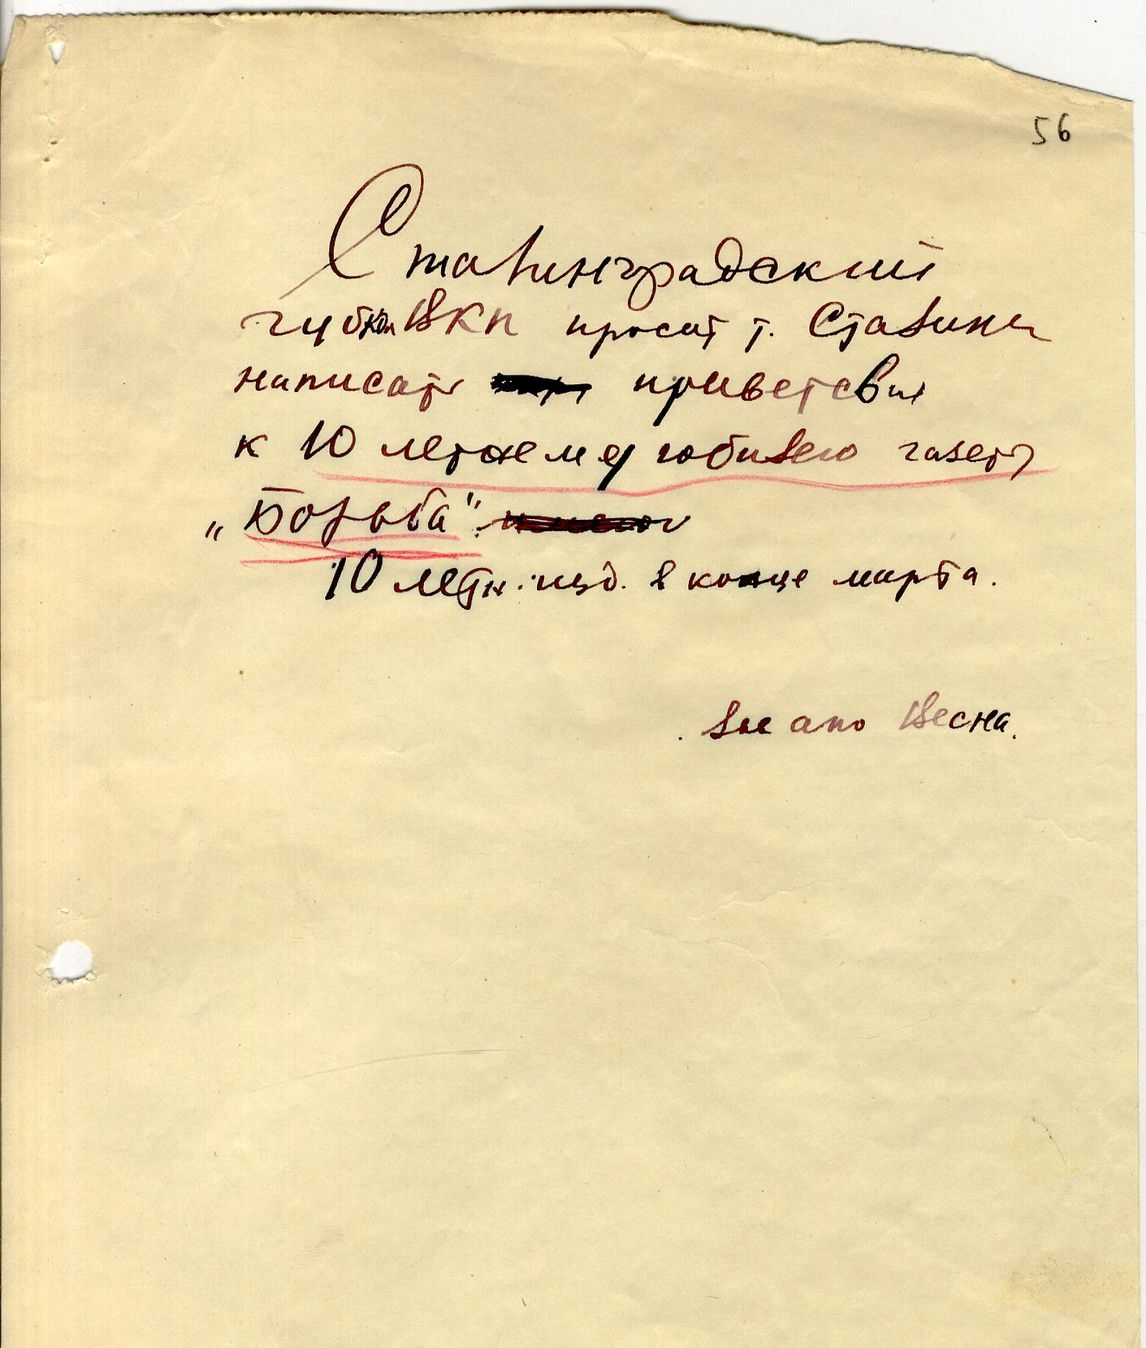 56
Сталинградский
губком ВКП просит т. Сталина
написать приветствие
к 10 летнему юбилею газеты
„Борьба".
10 летн. изд. в конце марта.
Весна.